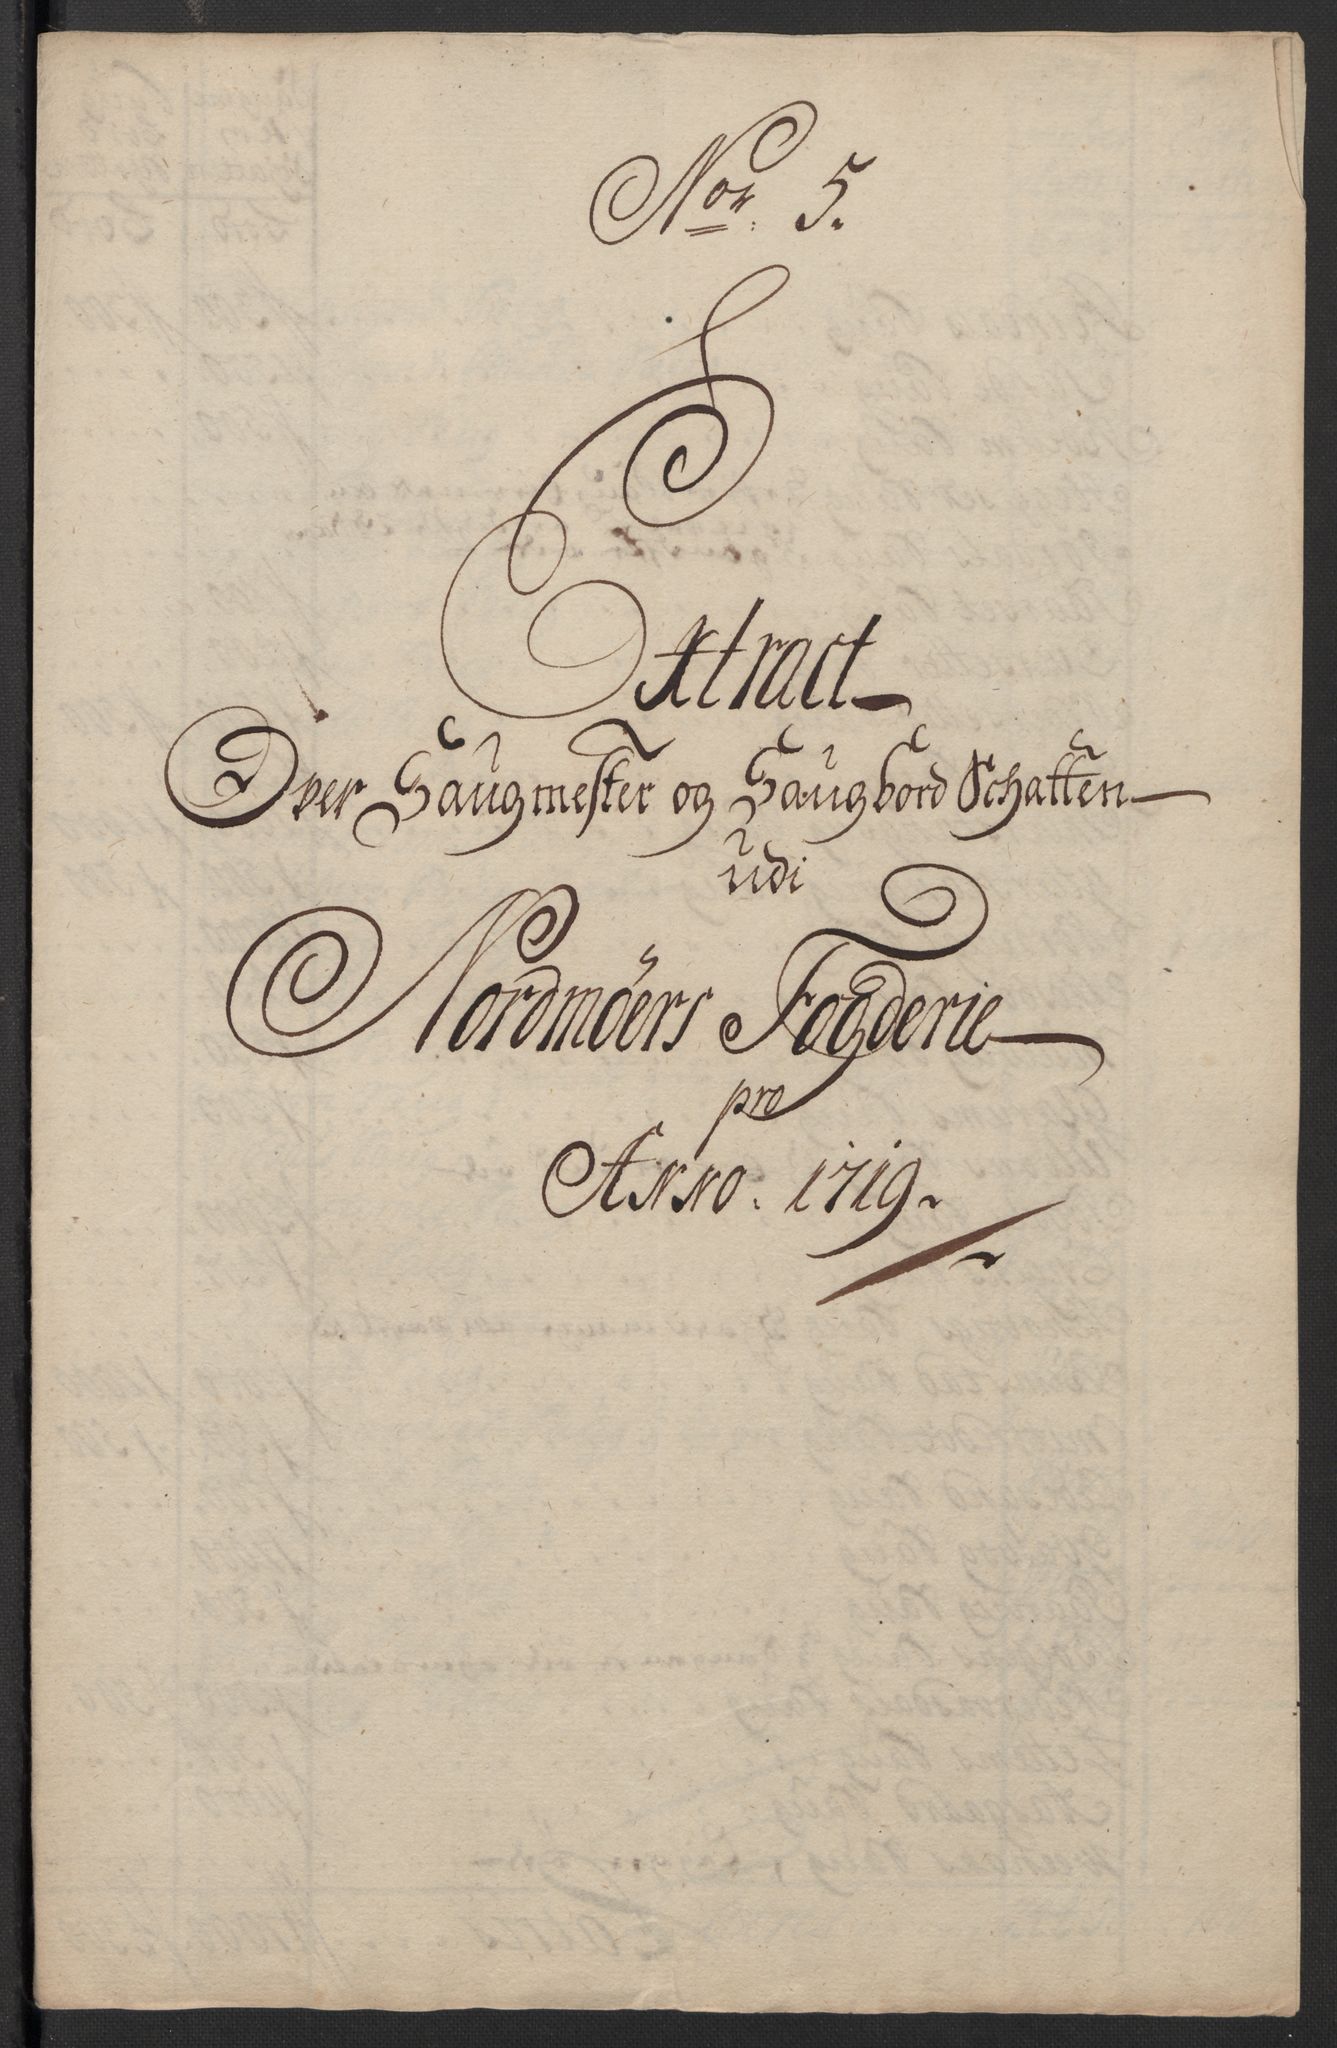 Nor. 5.
Extract
Over Saugmester og Saugbord Schatten
udi
Nordmöers Fogderie
pro
Anno. 1719.